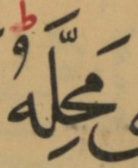 مَحِلَّهُ ؕ